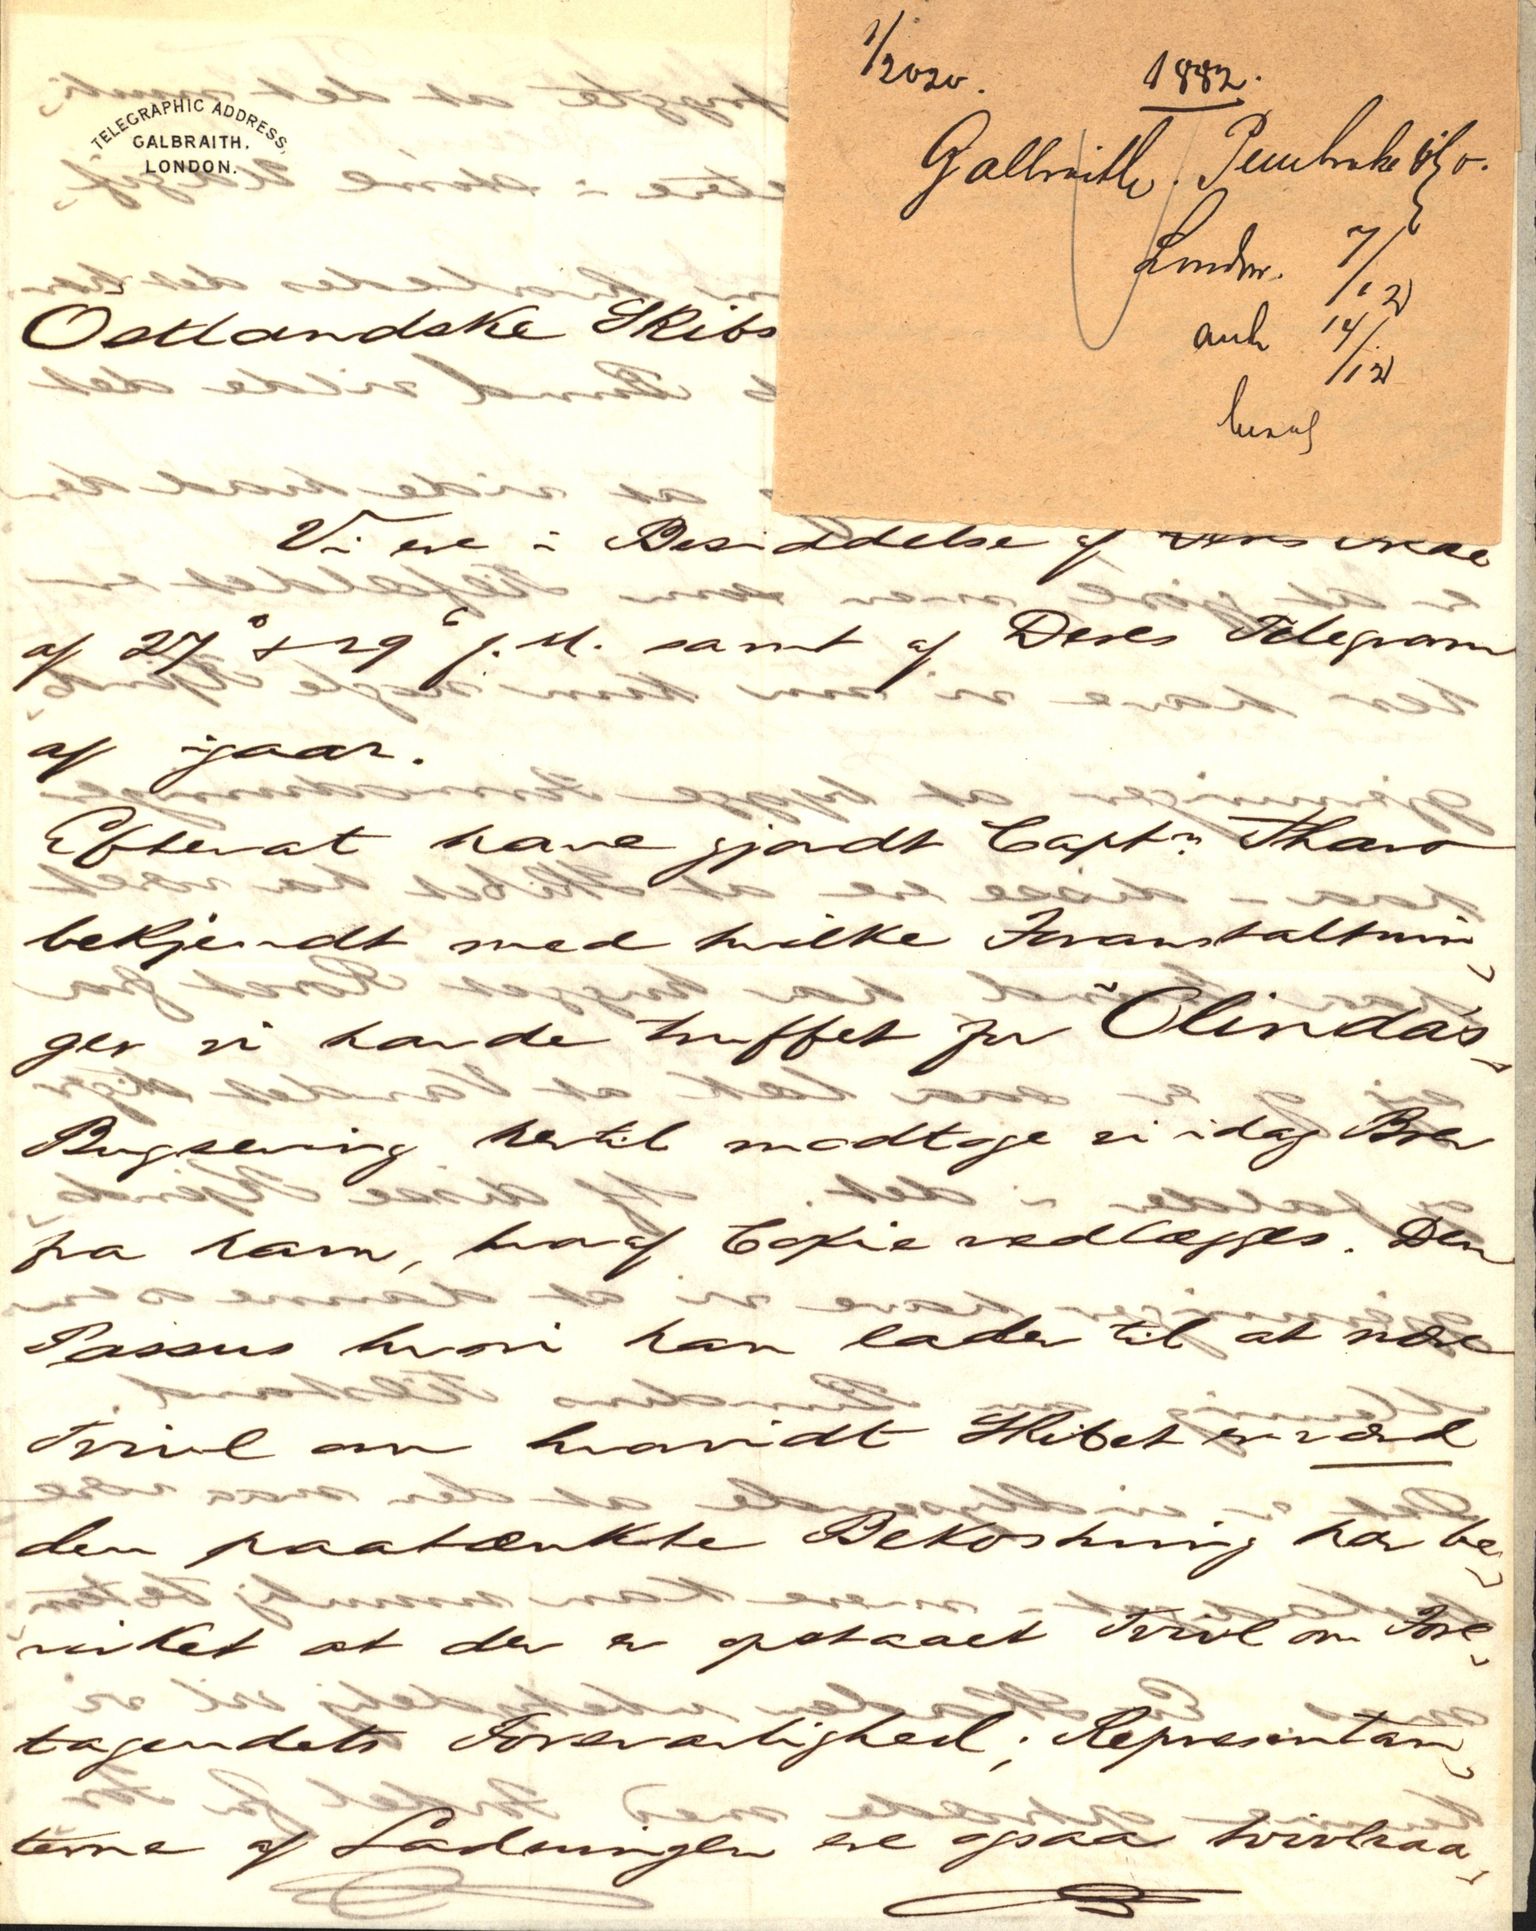 TELEGRAPHIC ADDRESS,
GALBRAITH.
LONDON.
1/2020.
1882.
Galbraith. Pembroke & Co.
London. 7/12
ank 14/12
besv
Östlandske Skibs
Vi ere i Besiddelse af
af 27° & 29° f. M. samt af Deres Telegram
af igaar.
Efterat have gjordt Captn. Tharo
bekjendt med hvilke Foranstaltnin,
ger vi havde truffet for "Olinda's
Bugsering hertil modtoge vi idag Brev
fra ham, hvoraf Copie vedlægges. Den
Passus hvori han lader til at være
Tvivl om hvorvidt Skibet er værd
den paatænkte Bekostning har be,
virket at der er opstaaet Tvivl om Fore,
tagendets Forsvarlighed; Representan,
terne af Ladningen ere ogsaa tvivlraa,